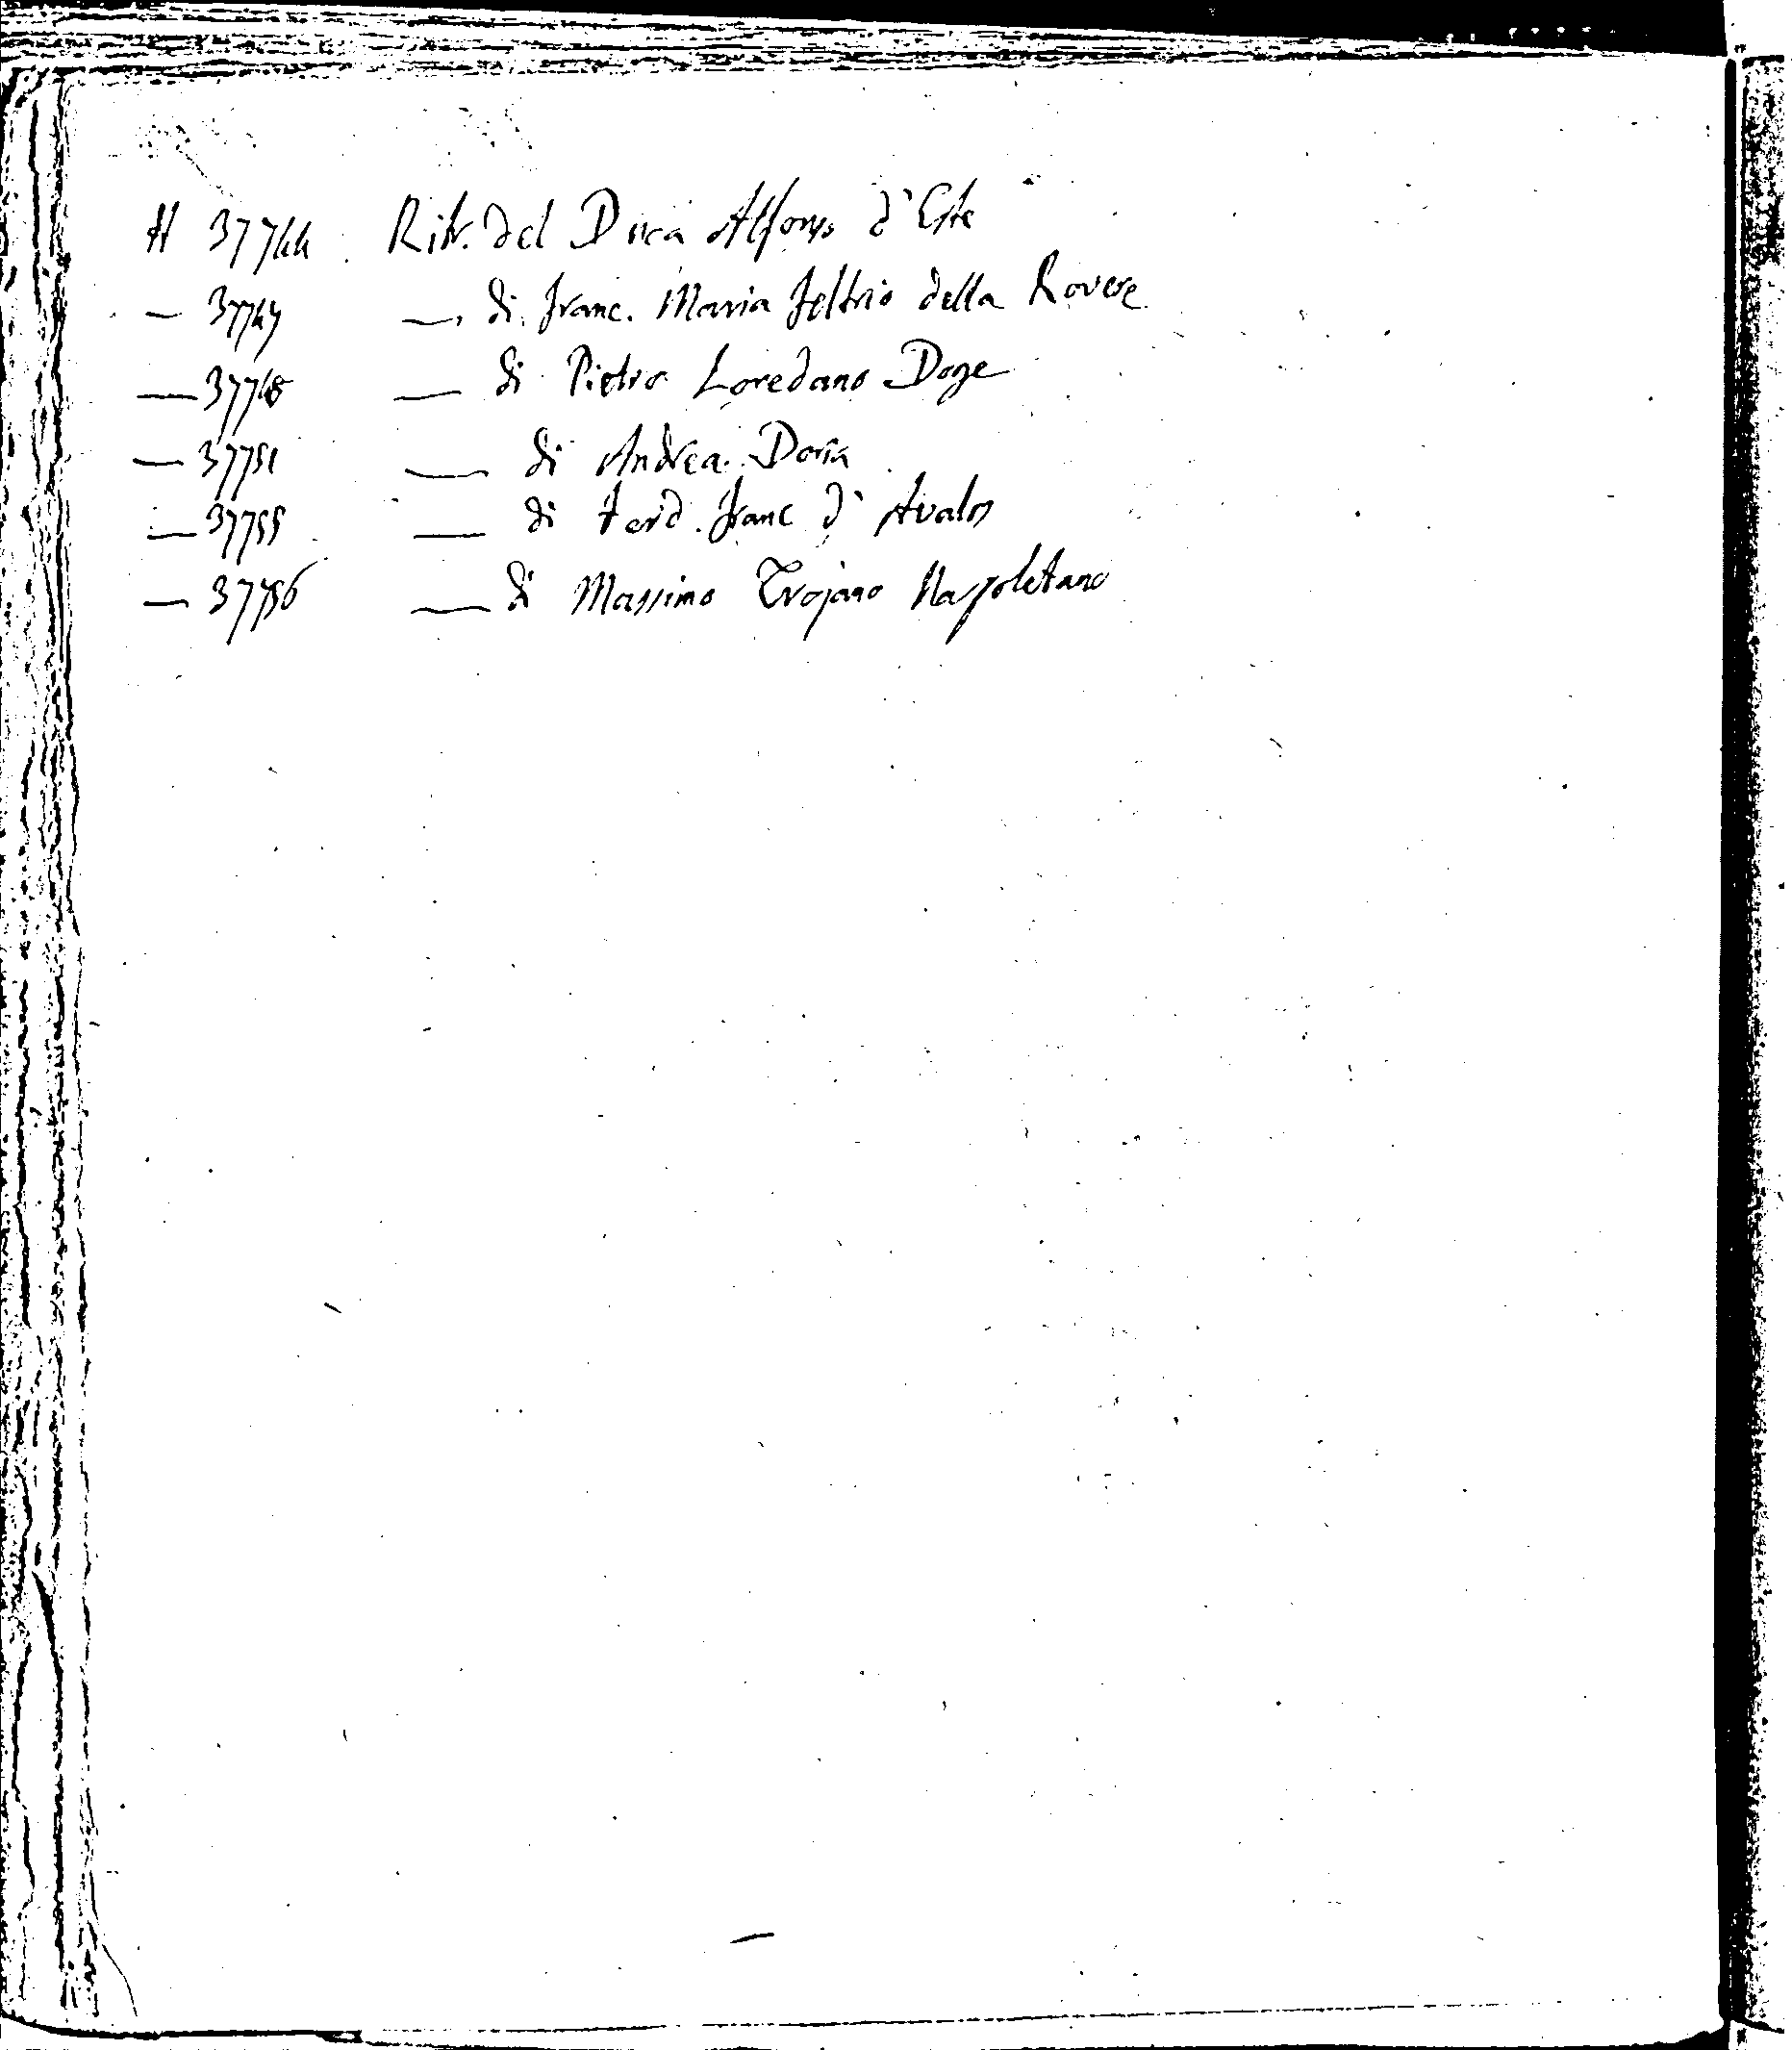 H 37744 Ritr. del Duca Alfonso d'Este
— 37747 —. di franc. Maria feltrio della Rovere
— 37748 — di Pietro Loredano Doge
— 37751 — di Andrea Doria
— 37755 — di ferd. franc d' Avalos
— 37756 — di Massimo Trojano Napoletano